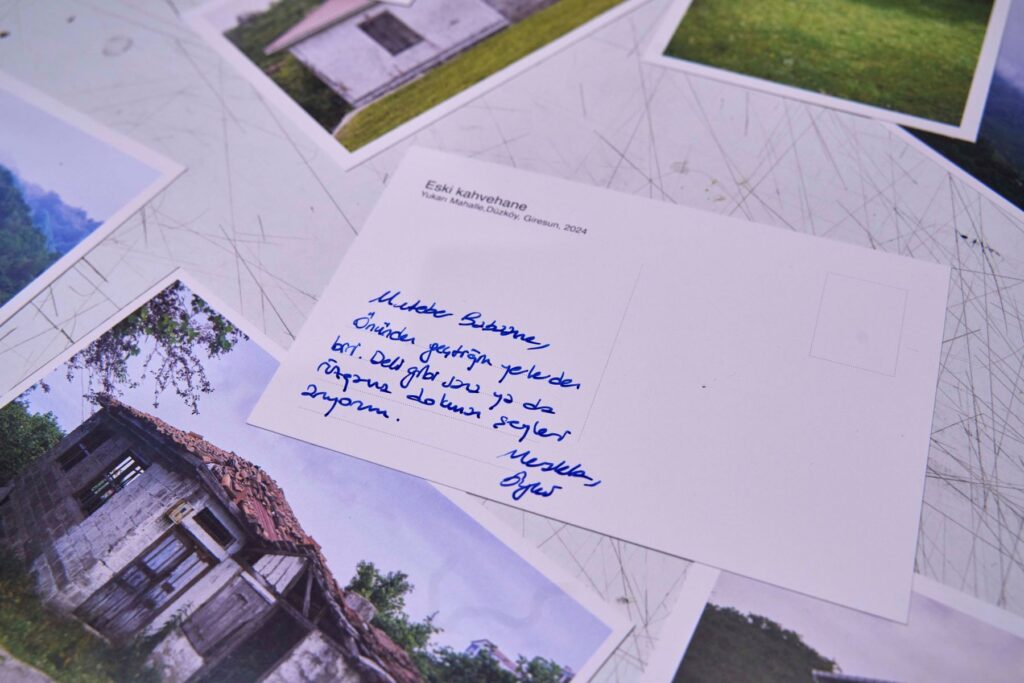 Eski kahvehane
Yukarı Mahalle,Düzköy, Giresun, 2024
Muteber Babanne,
Önünden geçtiğim yerlerden
biri. Deli gibi sana ya da
rüzgarına dokunan şeyleri
arıyorum.